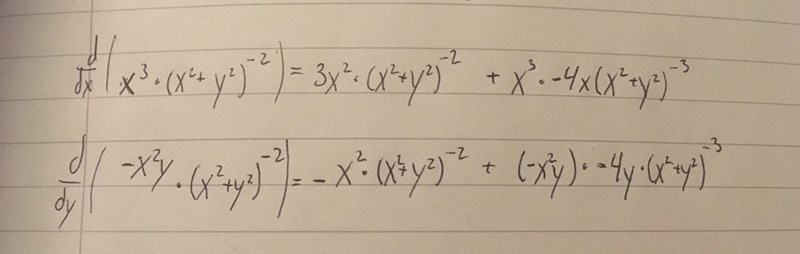 d/dx (x³·(x²+y²)⁻²) = 3x²·(x²+y²)⁻² + x³·-4x(x²+y²)⁻³
d/dy (-x²y·(x²+y²)⁻²) = -x²·(x²+y²)⁻² + (-x²y)·-4y·(x²+y²)⁻³